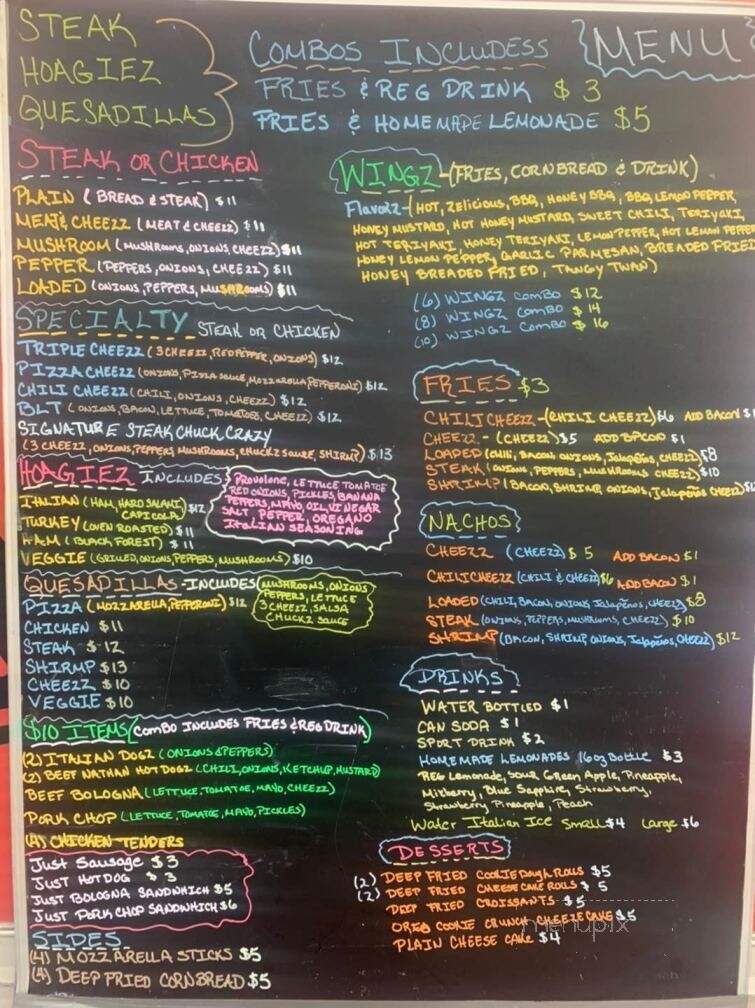 STEAK
HOAGIEZ
QUESADILLAS
COMBOS INCLUDESS
FRIES & REG DRINK $3
FRIES & HOMEMADE LEMONADE $5
MENU
STEAK OR CHICKEN
PLAIN (BREAD & STEAK) $11
MEAT & CHEEZZ (MEAT & CHEEZZ) $11
MUSHROOM (MUSHROOMS, ONIONS, CHEEZZ) $11
PEPPER (PEPPERS, ONIONS, CHEEZZ) $11
LOADED (ONIONS, PEPPERS, MUSHROOMS) $11
SPECIALTY STEAK OR CHICKEN
TRIPLE CHEEZZ (3 CHEEZZ, RED PEPPER, ONIONS) $12
PIZZA CHEEZZ (ONIONS, PIZZA SAUCE, MOZZARELLA PEPPERONI) $12
CHILI CHEEZZ (CHILI, ONIONS, CHEEZZ) $12
BLT (ONIONS, BACON, LETTUCE, TOMATOES, CHEEZZ) $12
SIGNATURE STEAK CHUCK CRAZY
(3 CHEEZZ, ONIONS, PEPPERS MUSHROOMS, CHUCKZ SAUCE, SHIRMP) $13
HOAGIEZ INCLUDES
PROVOLONE, LETTUCE TOMATOE
RED ONIONS, PICKLES, BANANA
PEPPERS, MAYO, OIL, VINEGAR
SALT PEPPER, OREGANO
ITALIAN SEASONING
ITALIAN (HAM, HARD SALAMI CAPICOLA) $12
TURKEY (OVEN ROASTED) $11
HAM (BLACK FOREST) $11
VEGGIE (GRILLED, ONIONS, PEPPERS, MUSHROOMS) $10
QUESADILLAS - INCLUDES
MUSHROOMS, ONIONS
PEPPERS, LETTUCE
3 CHEEZZ, SALSA
CHUCKZ SAUCE
PIZZA (MOZZARELLA, PEPPERONI) $12
CHICKEN $11
STEAK $12
SHIRMP $13
CHEEZZ $10
VEGGIE $10
$10 ITEMS (COMBO INCLUDES FRIES & REG DRINK)
(2) ITALIAN DOGZ (ONIONS & PEPPERS)
(2) BEEF NATHAN HOT DOGZ (CHILI, ONIONS, KETCHUP, MUSTARD)
BEEF BOLOGNA (LETTUCE, TOMATOE, MAYO, CHEEZZ)
PORK CHOP (LETTUCE, TOMATOE, MAYO, PICKLES)
(4) CHICKEN TENDERS
JUST SAUSAGE $3
JUST HOT DOG $3
JUST BOLOGNA SANDWHICH $5
JUST PORK CHOP SANDWHICH $6
SIDES
(4) MOZZARELLA STICKS $5
(4) DEEP FRIED CORNBREAD $5
WINGZ - (FRIES, CORNBREAD & DRINK)
FLAVORZ - (HOT, ZELICIOUS, BBQ, HONEY BBQ, BBQ LEMON PEPPER,
HONEY MUSTARD, HOT HONEY MUSTARD, SWEET CHILI, TERIYAKI,
HOT TERIYAKI, HONEY TERIYAKI, LEMON PEPPER, HOT LEMON PEPPER
HONEY LEMON PEPPER, GARLIC PARMESAN, BREADED FRIED
HONEY BREADED FRIED, TANGY TWAN)
(6) WINGZ COMBO $12
(8) WINGZ COMBO $14
(10) WINGZ COMBO $16
FRIES $3
CHILI CHEEZZ - (CHILI CHEEZZ) $6 ADD BACON $1
CHEEZZ - (CHEEZZ) $5 ADD BACON $1
LOADED (CHILI, BACON, ONIONS, JALAPEÑOS, CHEEZZ) $8
STEAK (ONIONS, PEPPERS, MUSHROOMS CHEEZZ) $10
SHRIMP (BACON, SHRIMP, ONIONS, JALAPEÑOS CHEEZZ) $12
NACHOS
CHEEZZ (CHEEZZ) $5 ADD BACON $1
CHILI CHEEZZ (CHILI & CHEEZZ) $6 ADD BACON $1
LOADED (CHILI, BACON, ONIONS, JALAPEÑOS, CHEEZZ) $8
STEAK (ONIONS, PEPPERS, MUSHROOMS, CHEEZZ) $10
SHRIMP (BACON, SHRIMP, ONIONS, JALAPEÑOS, CHEEZZ) $12
DRINKS
WATER BOTTLED $1
CAN SODA $1
SPORT DRINK $2
HOMEMADE LEMONADES 16oz BOTTLE $3
REG LEMONADE, SOUR GREEN APPLE, PINEAPPLE,
MIXBERRY, BLUE SAPPHIRE, STRAWBERRY,
STRAWBERRY PINEAPPLE, PEACH
WATER ITALIAN ICE SMALL $4 LARGE $6
DESSERTS
(2) DEEP FRIED COOKIE DOUGH ROLLS $5
(2) DEEP FRIED CHEESE CAKE ROLLS $5
DEEP FRIED CROISSANTS $5
OREO COOKIE CRUNCH CHEEZECAKE $5
PLAIN CHEESE CAKE $4
menupix